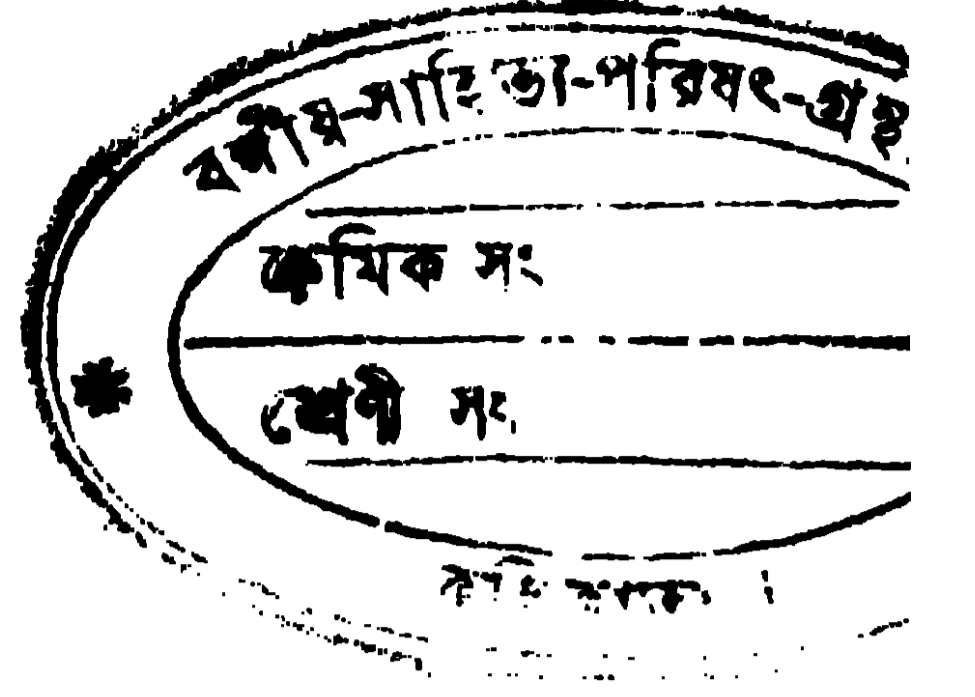 বঙ্গীয়-সাহিত্য-পরিষৎ-গ্রন্থ
ক্রমিক সং
শ্রেণী সং